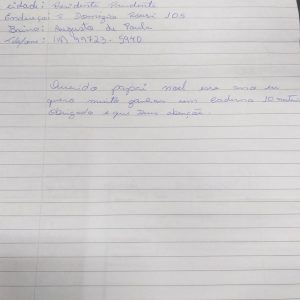 cidade: Presidente Prudente
Endereço: R Domingos 105
Bairro: Augusto de Paula
Telefone: (18) 99723-5940
Querido papai noel esse ano eu
quero muito ganhar um caderno 10 matérias
obrigado e que Deus abençõe